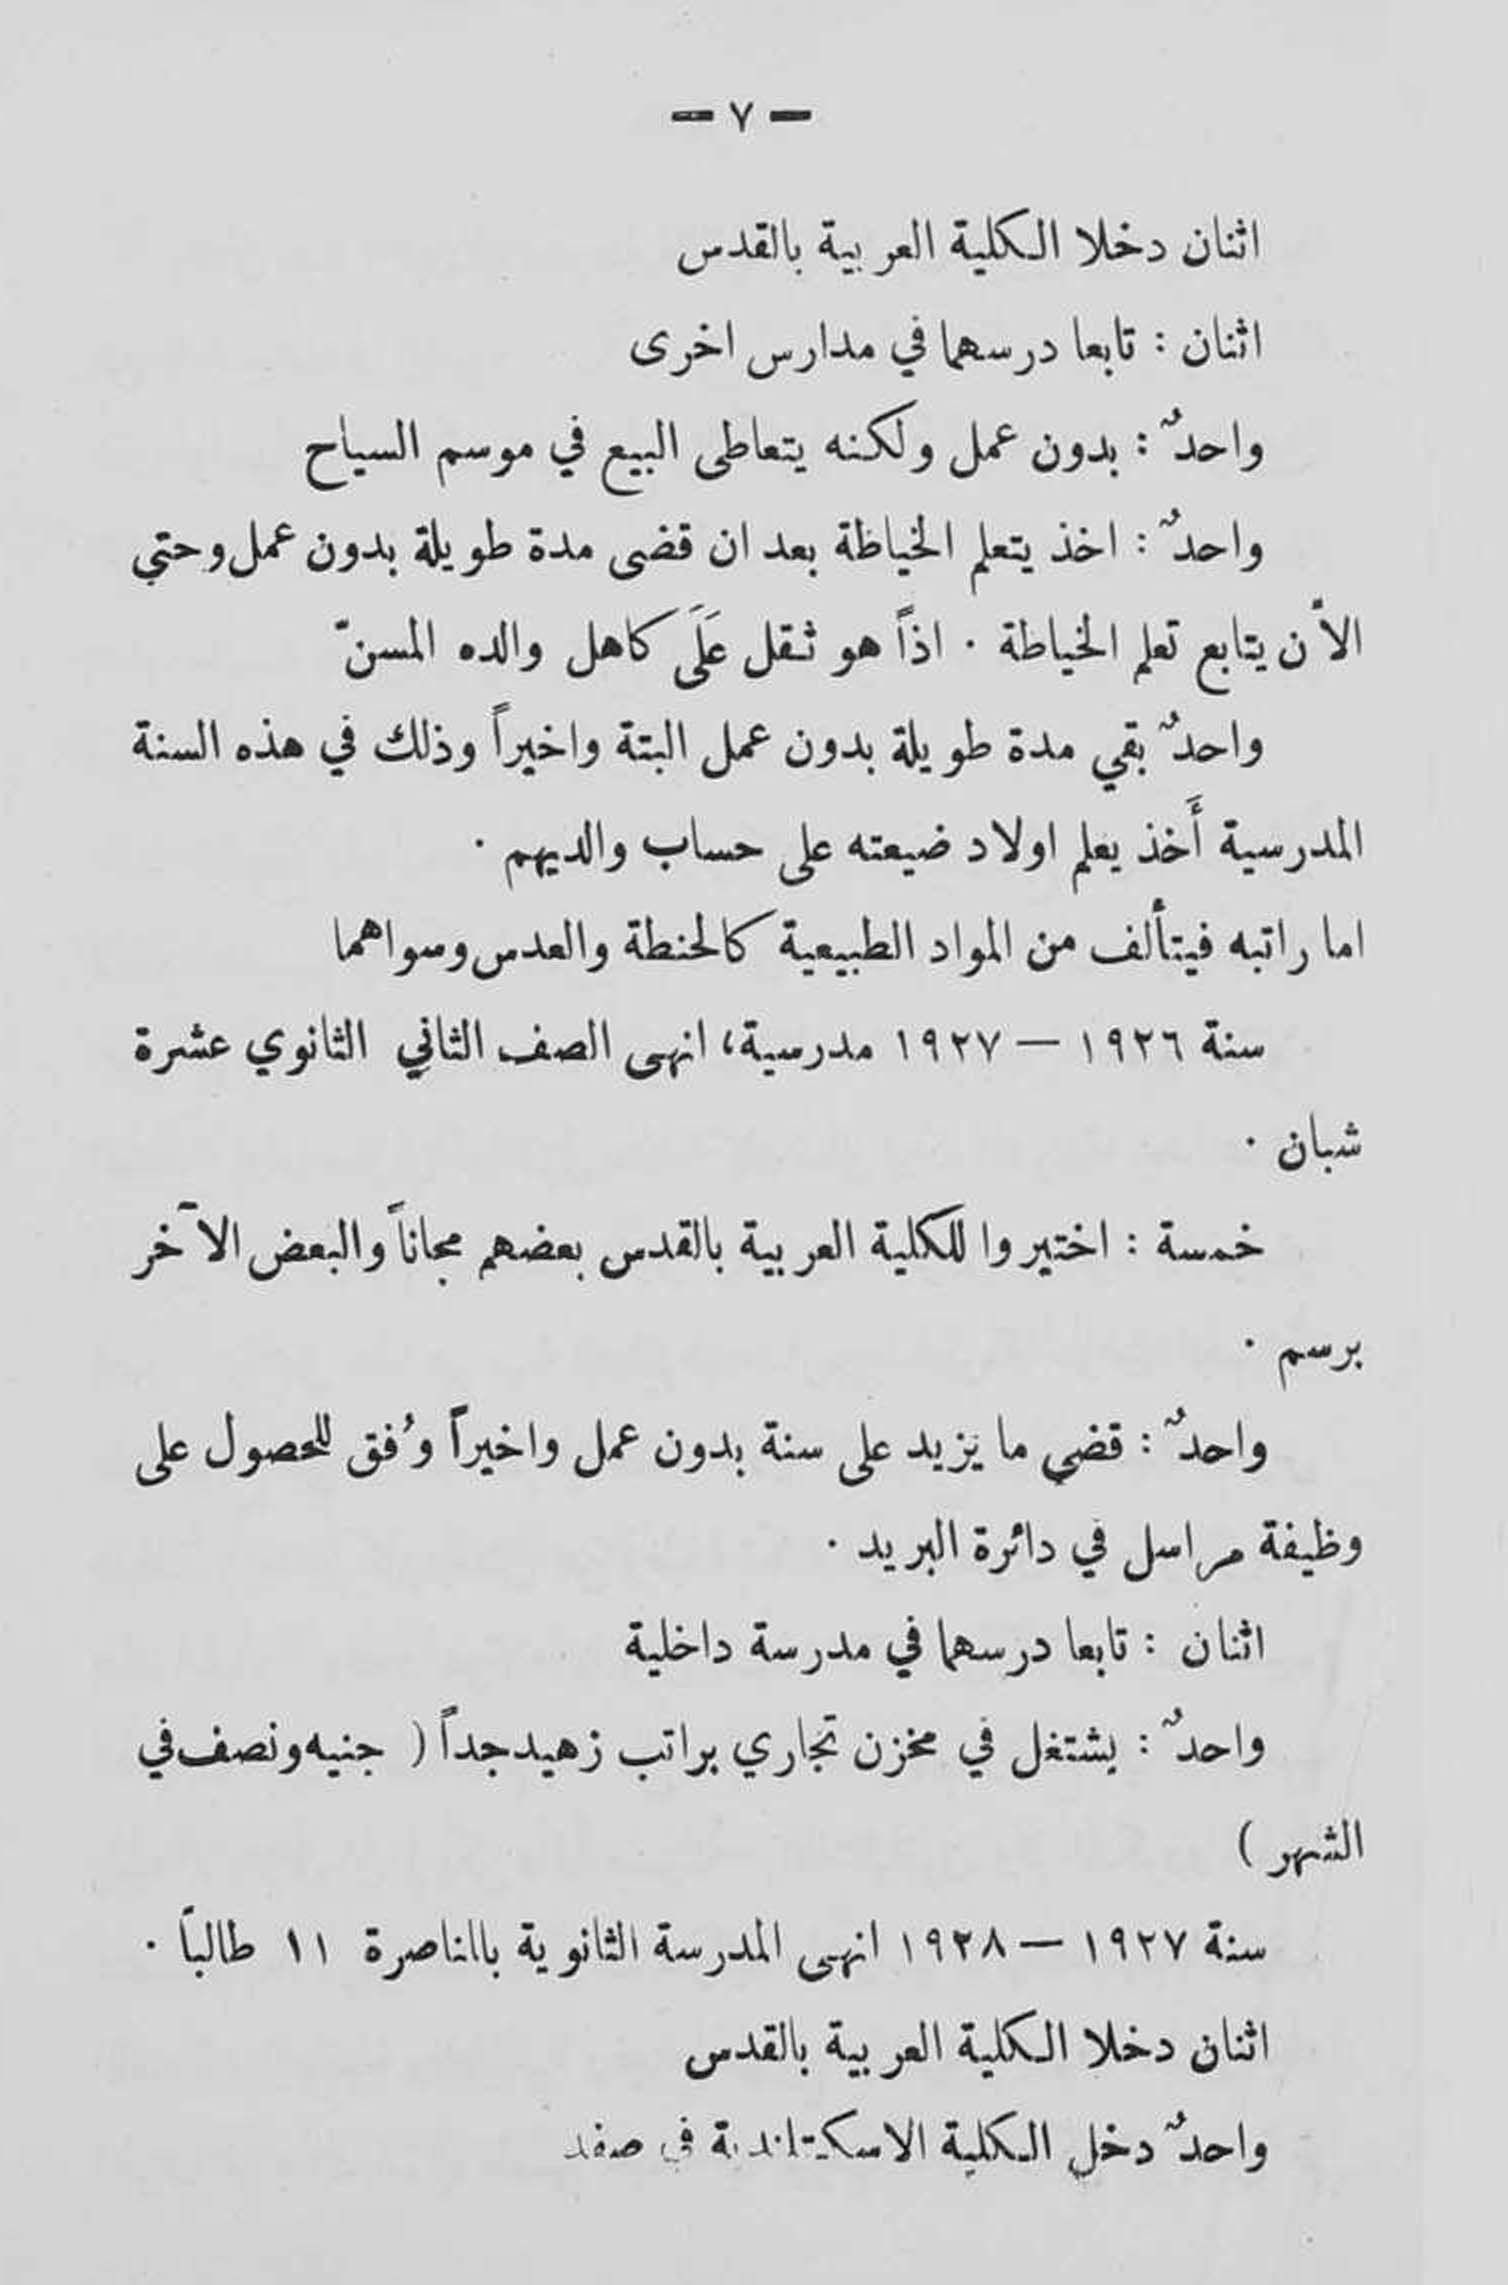 — ٧ —
اثنان دخلا الكلية العربية بالقدس
اثنان : تابعا درسهما في مدارس اخرى
واحدٌ : بدون عمل ولكنه يتعاطى البيع في موسم السياح
واحدٌ : اخذ يتعلم الخياطة بعد ان قضى مدة طويلة بدون عمل وحتي
الآن يتابع تعلم الخياطة . اذاً هو ثقل عَلَى كاهل والده المسنّ
واحدٌ بقي مدة طويلة بدون عمل البتة واخيراً وذلك في هذه السنة
المدرسية أَخذ يعلم اولاد ضيعته على حساب والديهم .
اما راتبه فيتألف من المواد الطبيعية كالحنطة والعدس وسواهما
سنة ١٩٢٦ — ١٩٢٧ مدرسية، انهى الصف الثاني الثانوي عشرة
شبان .
خمسة : اختيروا للكلية العربية بالقدس بعضهم مجاناً والبعض الآخر
برسم .
واحدٌ : قضي ما يزيد على سنة بدون عمل واخيراً وُفق للحصول على
وظيفة مراسل في دائرة البريد .
اثنان : تابعا درسهما في مدرسة داخلية
واحدٌ : يشتغل في مخزن تجاري براتب زهيد جداً ( جنيه ونصف في
الشهر )
سنة ١٩٢٧ — ١٩٢٨ انهى المدرسة الثانوية بالناصرة ١١ طالباً .
اثنان دخلا الكلية العربية بالقدس
واحدٌ دخل الكلية الاسكتلندية في صفد